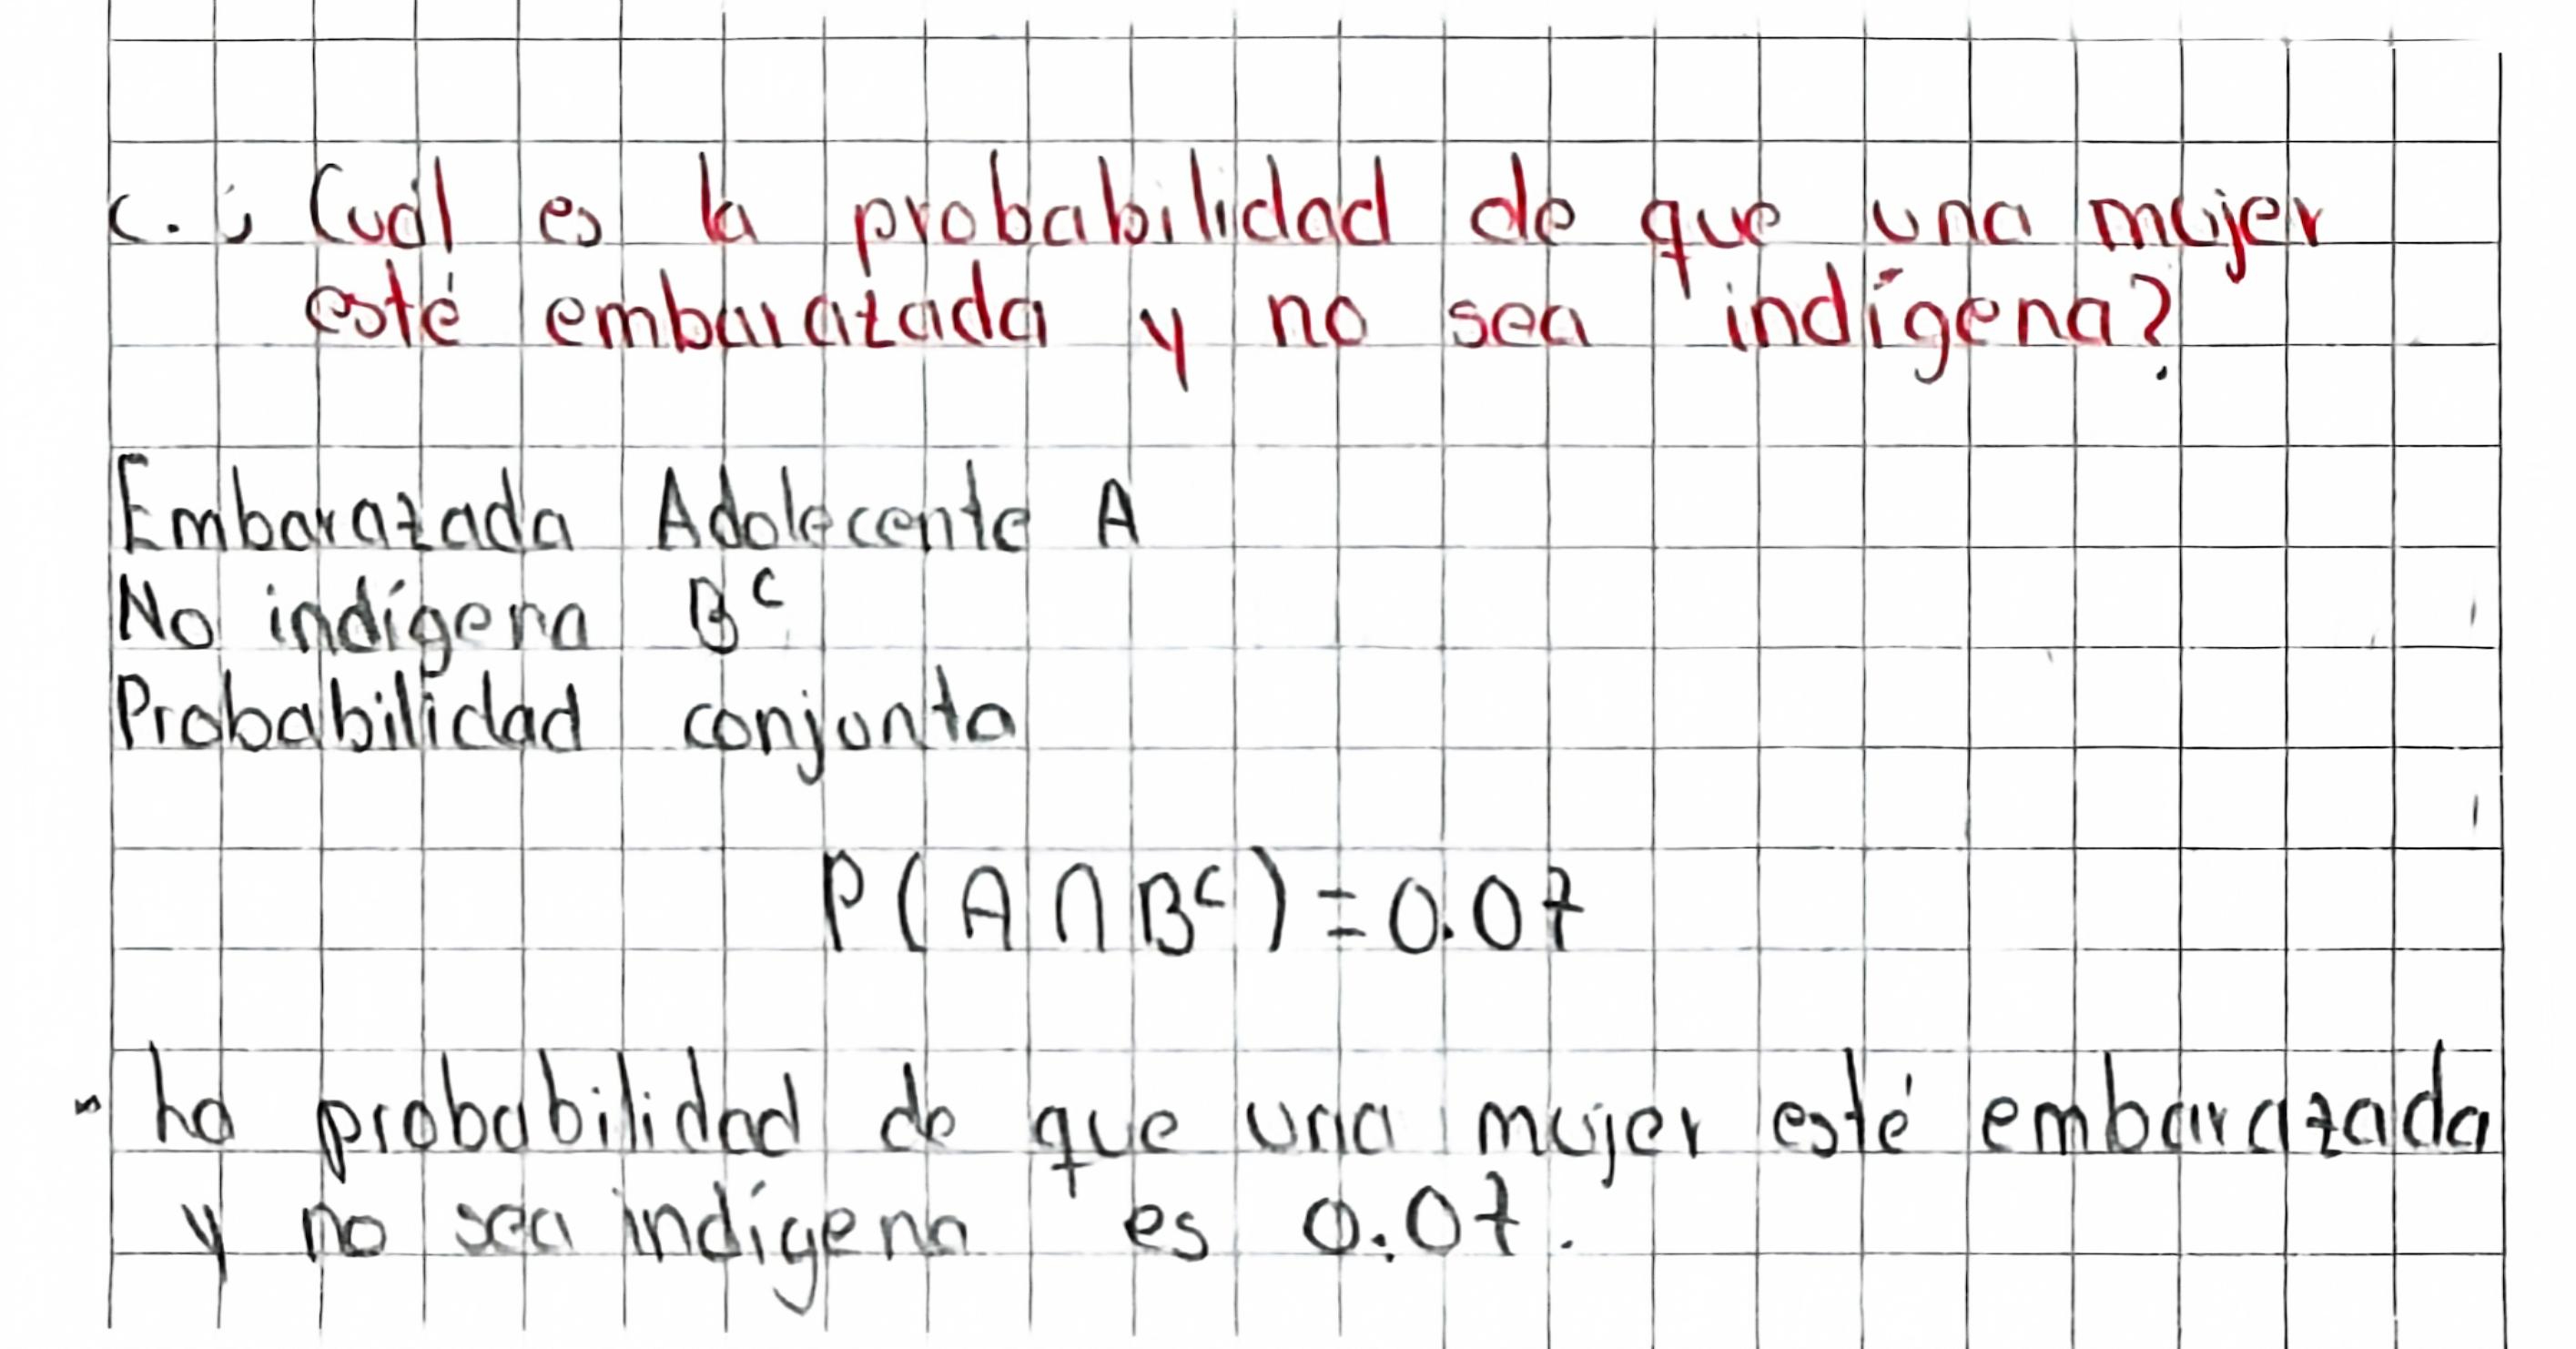 c. ¿Cuál es la probabilidad de que una mujer
esté embarazada y no sea indígena?
Embarazada Adolecente A
No indígena Bᶜ
Probabilidad conjunta
P(A∩Bᶜ)=0.07
La probabilidad de que una mujer esté embarazada
y no sea indígena es 0.07.